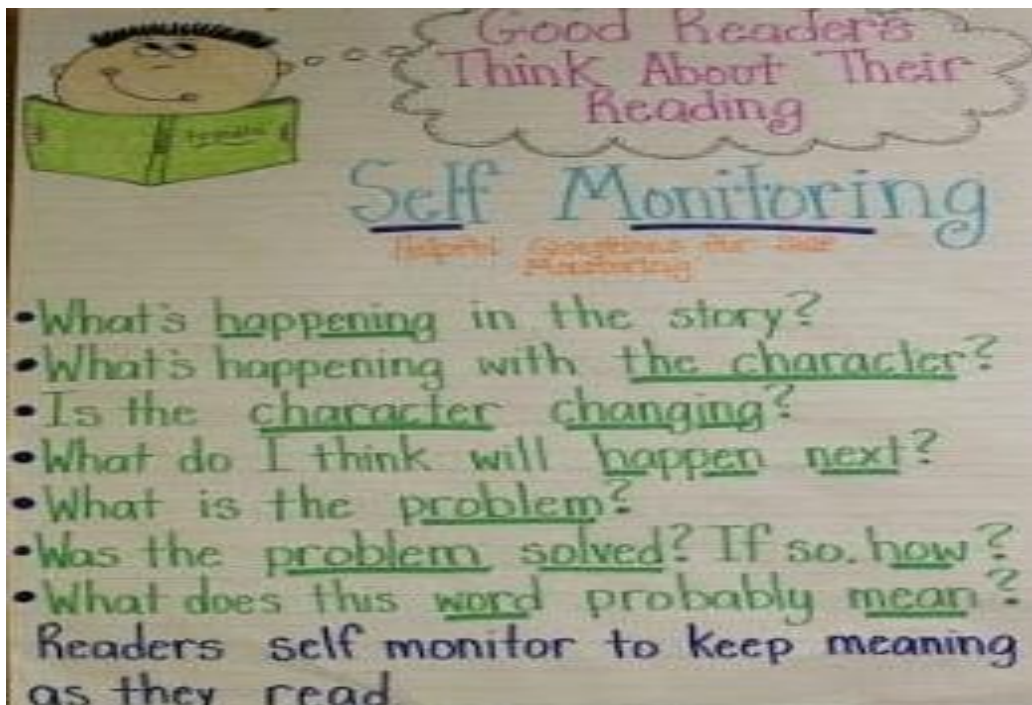 Good Readers
Think About Their
Reading
Self Monitoring
Helpful Questions for our
Monitoring
•What's happening in the story?
•What's happening with the character?
•Is the character changing?
•What do I think will happen next?
•What is the problem?
•Was the problem solved? If so. how?
•What does this word probably mean?
Readers self monitor to keep meaning
as they read